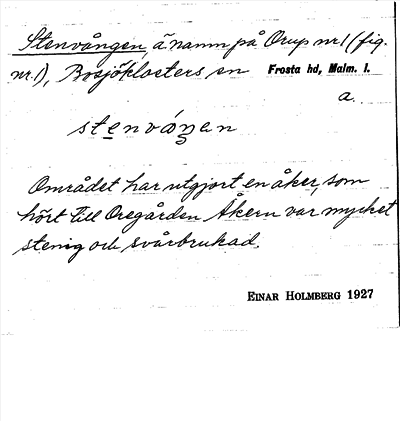 Stenvången, änamn på Orup nr 1 (fig.
nr. 1), Bosjöklosters sn Frosta hd, Malm. l.
a.
stenvóŋan
Området har utgjort en åker, som
hört till Oregården. Åkern var mycket
stenig och svårbrukad.
EINAR HOLMBERG 1927